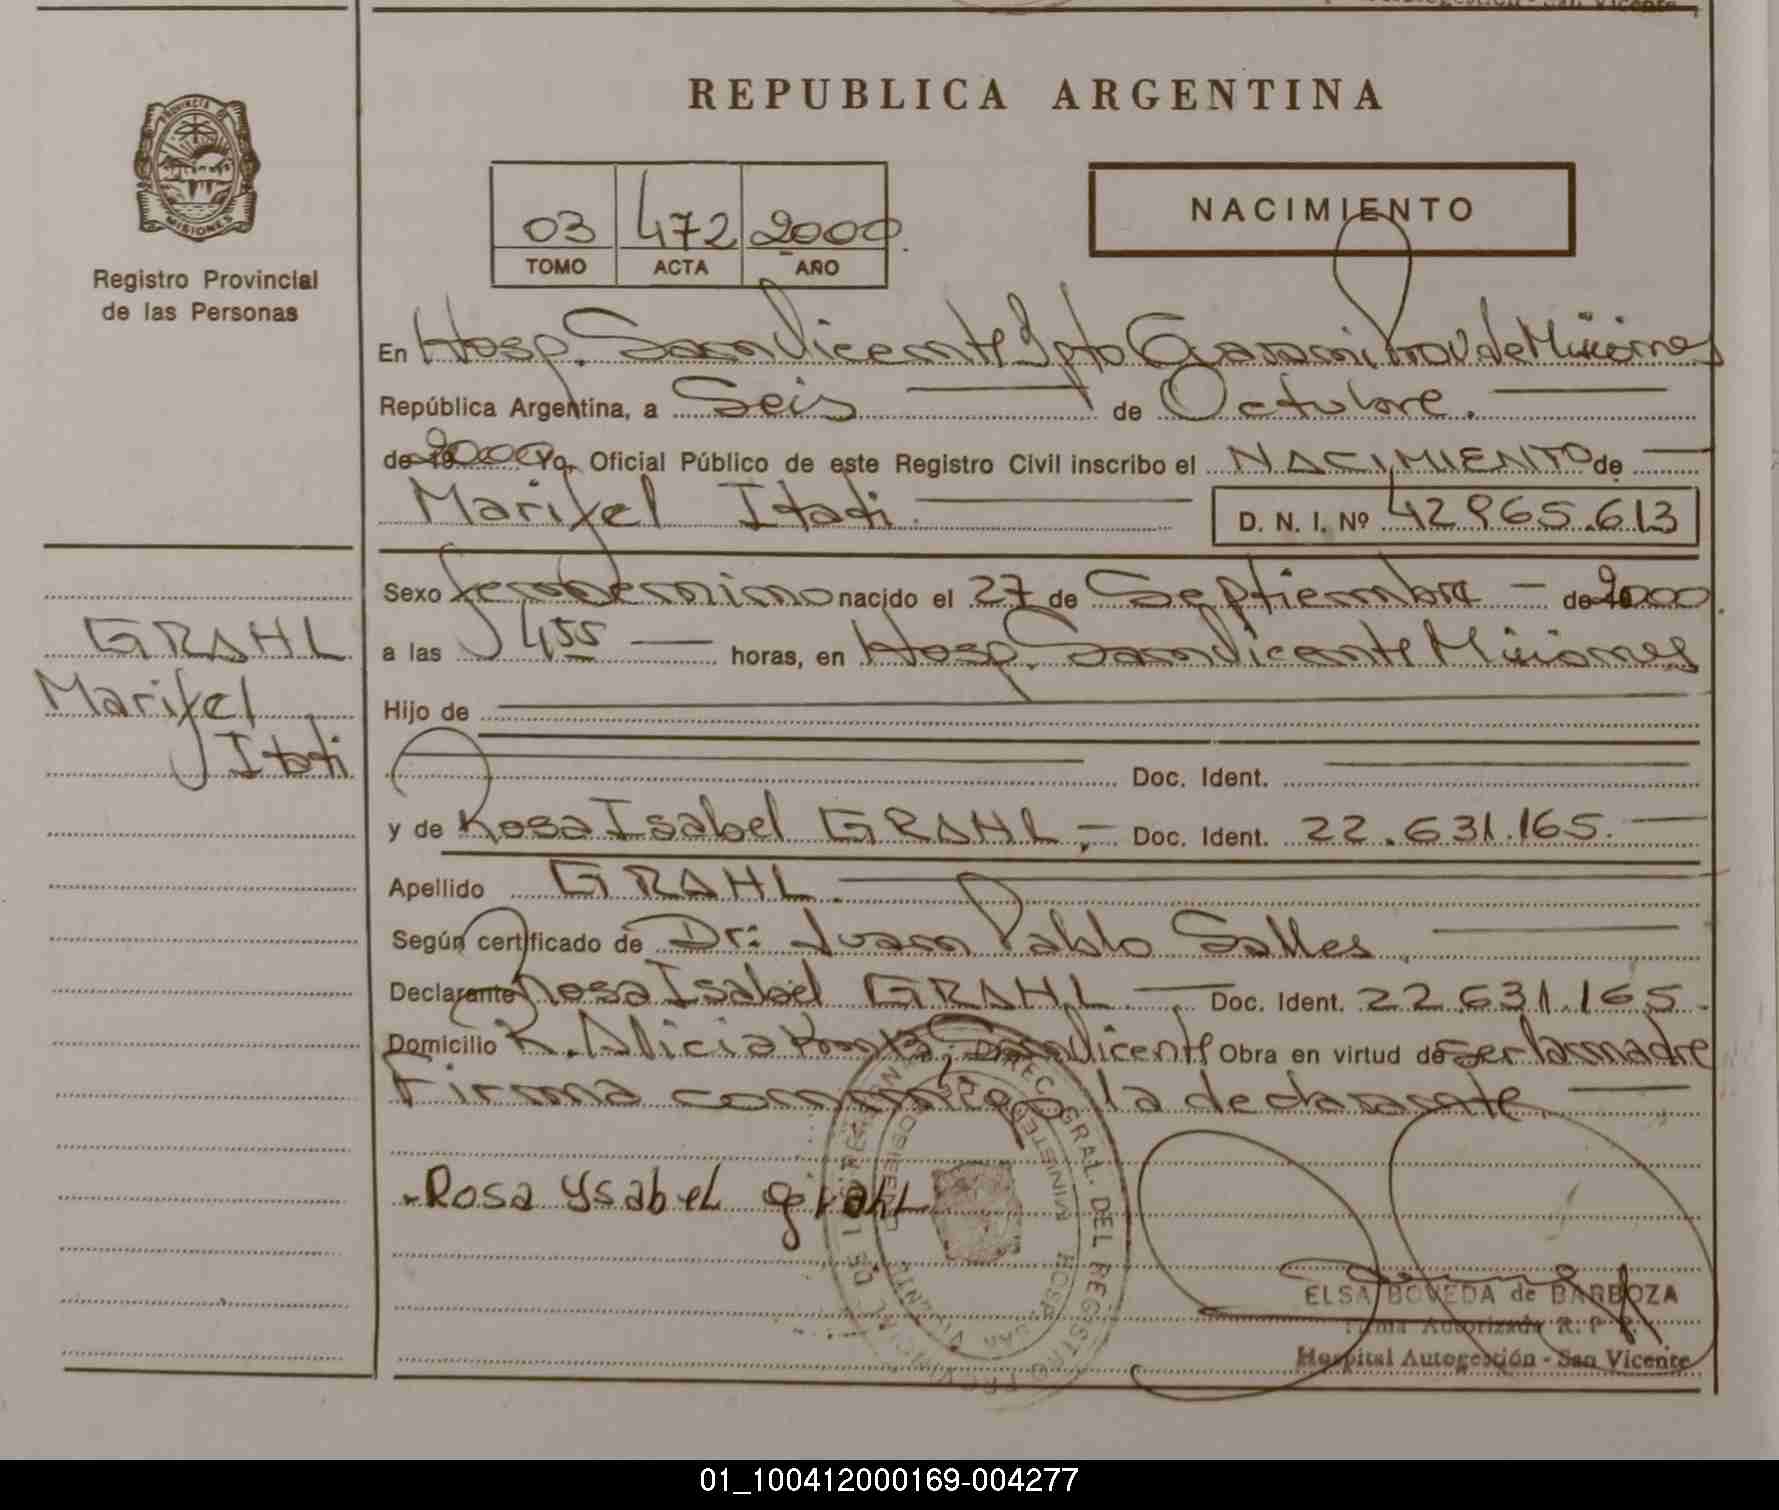 REPUBLICA ARGENTINA
PROVINCIA DE MISIONES
Registro Provincial
de las Personas
03 472 2000
TOMO ACTA AÑO
NACIMIENTO
En Hosp. San Vicente Dpto Guarani Prov de Misiones
República Argentina, a Seis de Octubre.
de 2000 Yo, Oficial Público de este Registro Civil inscribo el NACIMIENTO de
Marixel Itati D. N. I. Nº 42.965.613
Sexo femenino nacido el 27 de Septiembre de 2000
a las 455 horas, en Hosp. San Vicente Misiones
Hijo de
Doc. Ident.
y de Rosa Isabel GRAHL Doc. Ident. 22.631.165.
Apellido GRAHL.
Según certificado de Dr: Juan Pablo Salles
Declarante Rosa Isabel GRAHL Doc. Ident. 22.631.165.
Domicilio K. Alicia San Vicente Obra en virtud de ser la madre
Firma conmigo la declarante
Rosa Ysabel grahL
ELSA BOVEDA de BARBOZA
Firma Autorizada R. P. P.
Hospital Autogestión - San Vicente
GRAHL
Marixel
Itati
01_100412000169-004277